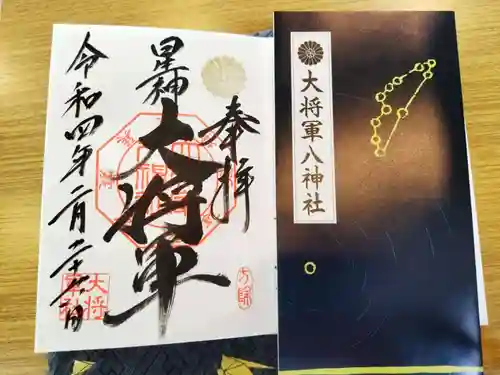 奉拝
星神
大将軍
令和四年二月二十六日
大将
軍社
大将軍八神社